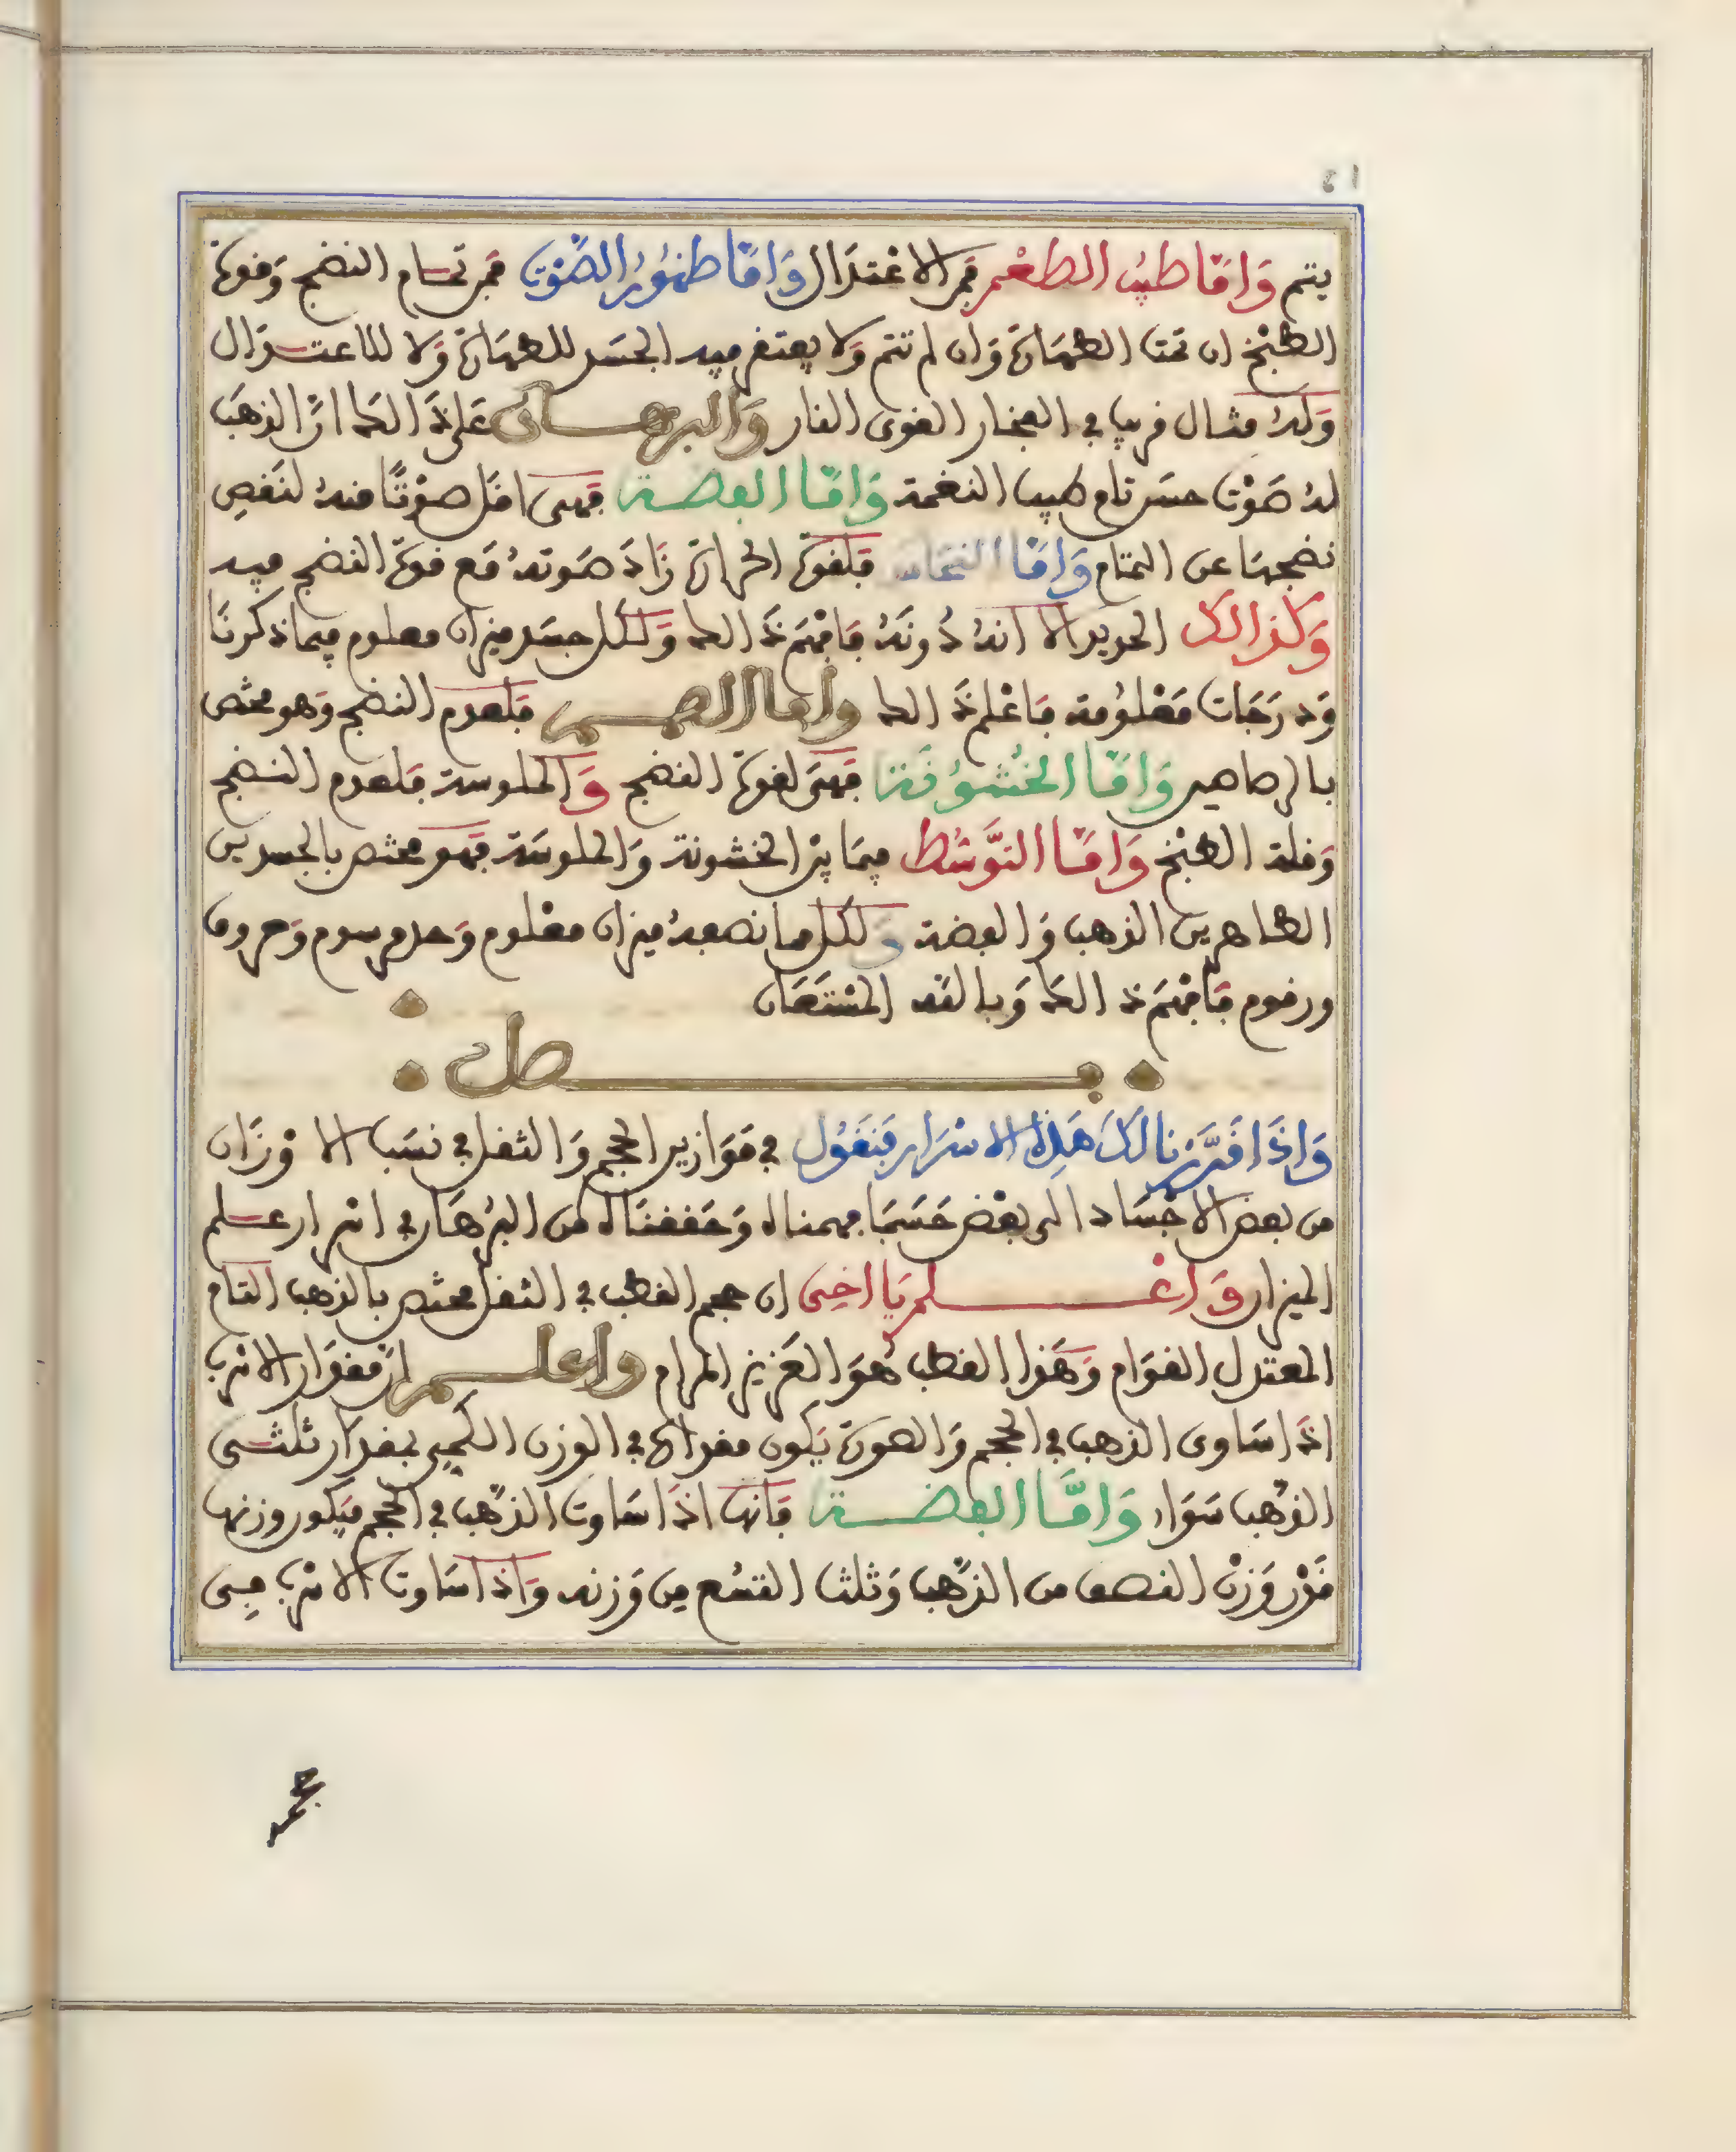 يتم وَامَّا طيبُ الطعْمِ فمن الاعْتدَال وَامَّا ظهُورُ الصَّوْت فمن تمام النضج وَقوة
الطبْخ ان تمت الطهَارة وَان لم تتم وَلا يفتقر فيه الجسَد للطهَارة وَلا للاعتدال
وَلهُ مثال قريب في الفخار القوى النار وَالبرهان عَلى ذَالك انَّ الذهَب
لهُ صَوْت حسَن تام طيب النغمة وَامَّا الفضة فهى اقل صوْتًا منهُ لنَقصِ
نضجهَا عن التمام وَامَّا النحَاس فلقوة الحرارة زَادَ صَوتهُ مَع قوة النضج فيه
وَكذالك الحديد الا انهُ دُونَهُ فافْهَم ذَالك وَلكل جسَد ميزان معلوم فيما ذكرنَا
وَدرَجَات مَعْلُومة فاعْلم ذَالك وامَّا الصمم فلعدم النضج وَهو مختص
بالرصاصين وَامَّا الخُشُونَة فهىَ لقوة النضج وَالملوسة فلعدم النضج
وَقلة الطبْخ وَامَّا التَّوسُّط فيمَا بيْن الخشونة وَالملوسَة فهو مختص بالجسدين
الطاهرين الذهب وَالفضة وَلكل ما نصفهُ ميزان معْلوم وَحد مرسوم وَحروف
ورقوم فافْهَم ذالك وَبالله المسْتَعَان
فصل
وَاذَا قَرَّرْنا لكَ هَذه الاسْرَار فنَقُول في مَوَازين الحجم وَالثقل في نسَب الاوْزَان
من بعض الاجْسَاد الى بعْض حَسَبمَا فهمناه وَحَققنَاه من البُرْهَان في اسْرار علم
الميزان وَاعْلم يَا اخِى ان حجم القطب في الثقل مختص بالذهب التام
المعتدل القوَام وَهَذا القطب هُوَ العَزيز المرام واعلم ان مقدَار الاسْرب
اذَا سَاوى الذهب في الحجم وَالصورة يَكون مقداره في الوزن الكمي بمقدَار ثلثى
الذهب سَوَاء وَامَّا الفضة فانها اذَا سَاوت الذهَب في الحجم فيَكون وزنها
قَدْر وَزن النصف من الذهَب وَثلث التسُع مِن وَزنه وَاذَا سَاوت الاسْرب فِى
حجم